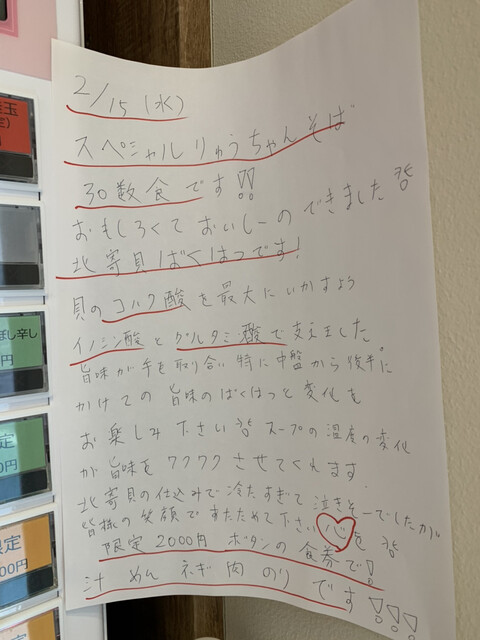 2/15(水)
スペシャルりゅうちゃんそば
30数食です!!
おもしろくておいしーのできました
北寄貝ばくはつです!
貝のコハク酸を最大にいかすよう
イノシン酸とグルタミン酸で支えました
旨味が手を取り合い特に中盤から後半に
かけての旨味のばくはつと変化を
お楽しみ下さい スープの温度の変化
が旨味をワクワクさせてくれます
北寄貝の仕込みで冷たすぎて泣きそーでしたが
皆様の笑顔で下さい 心を
限定2000円 ボタンの食券で!
汁 めん ネギ 肉 のり です!!!
玉
定)
し辛し
円
定
0円
限定
00円